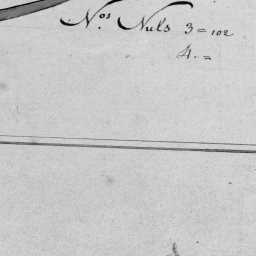 Nos Nuls 3=102
4.=